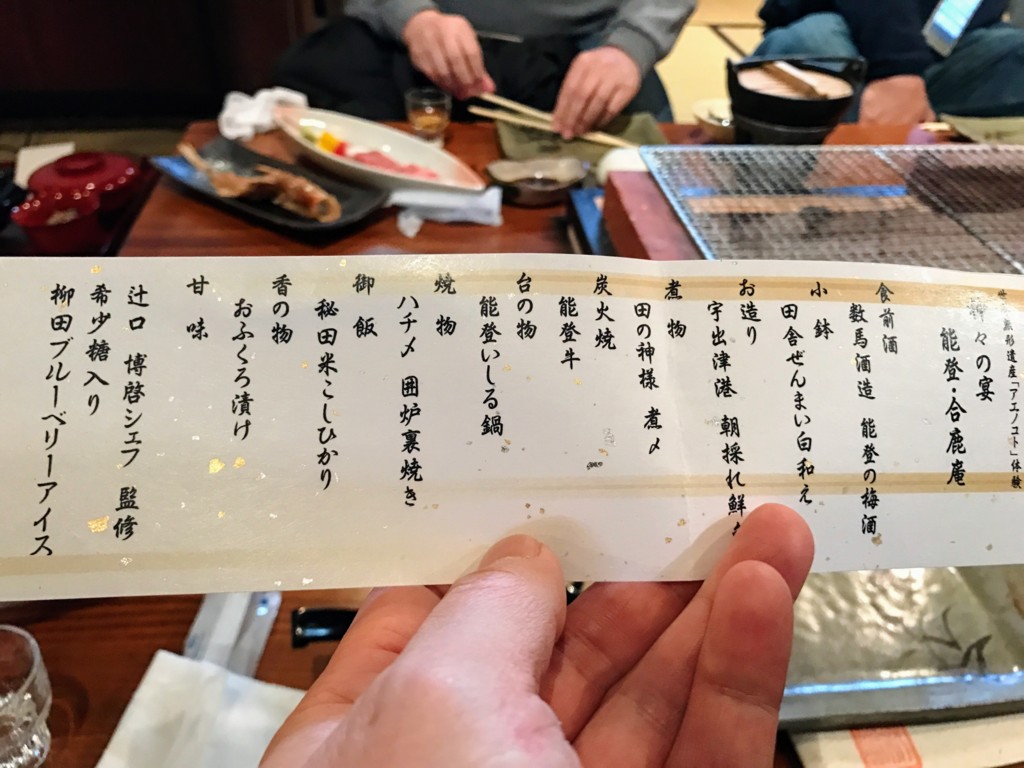 無形遺産「アエノコト」体験
神々の宴
能登・合鹿庵
食前酒
数馬酒造 能登の梅酒
小鉢
田舎ぜんまい白和え
お造り
宇出津港 朝採れ鮮
煮物
田の神様 煮〆
炭火焼
能登牛
台の物
能登いしる鍋
焼物
ハチメ 囲炉裏焼き
御飯
秘田米こしひかり
香の物
おふくろ漬け
甘味
辻口 博啓シェフ 監修
希少糖入り
柳田ブルーベリーアイス